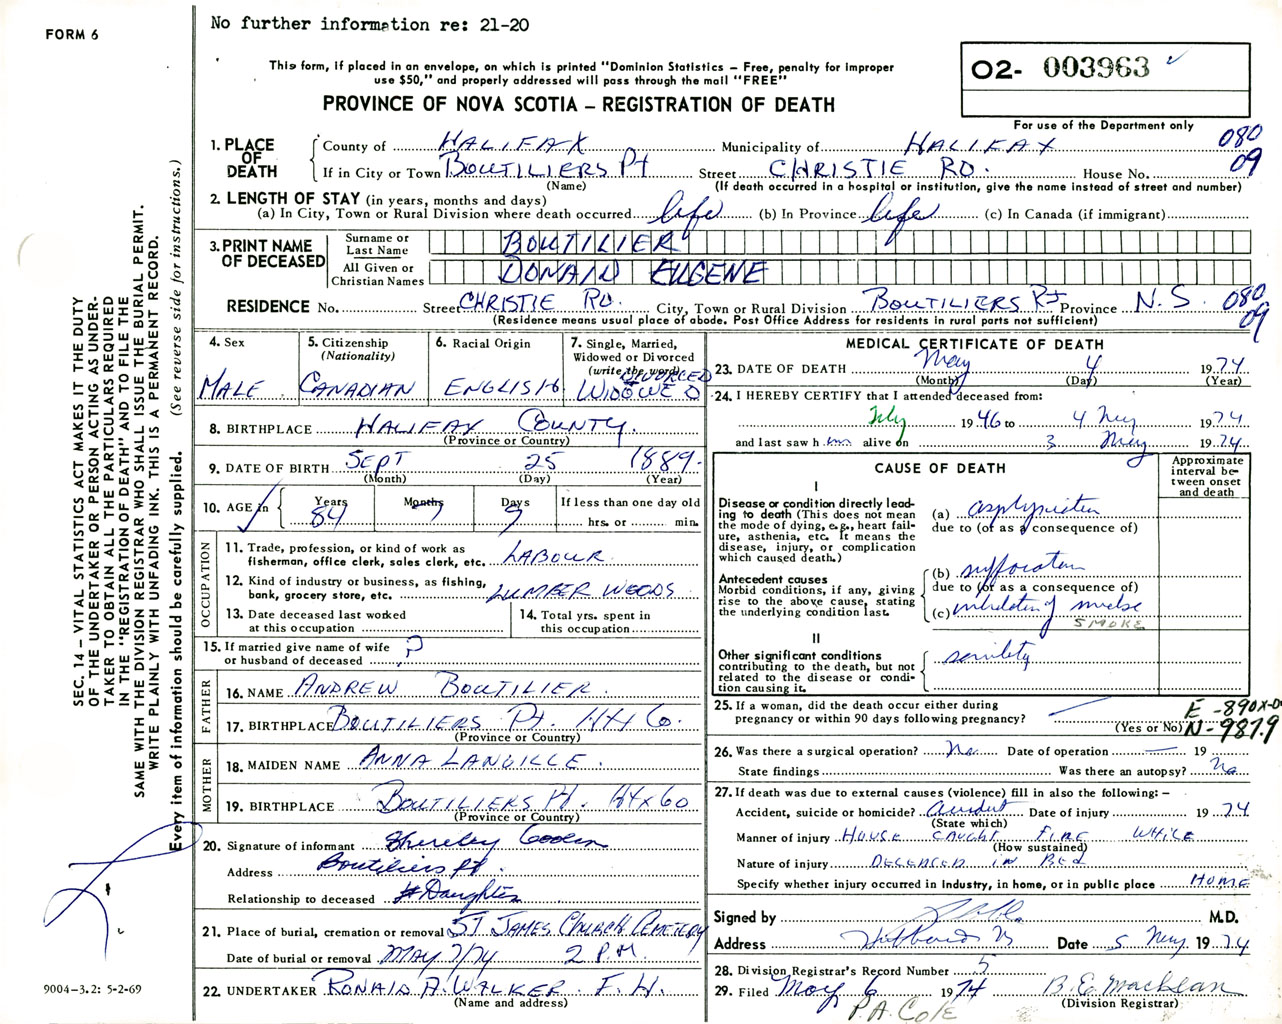 No further information re: 21-20
FORM 6
This form, if placed in an envelope, on which is printed "Dominion Statistics – Free, penalty for improper
use $50," and properly addressed will pass through the mail "FREE"
PROVINCE OF NOVA SCOTIA – REGISTRATION OF DEATH
02- 003963
For use of the Department only
1. PLACE OF DEATH
County of HALIFAX Municipality of HALIFAX 080
If in City or Town BOUTILIERS Pt Street CHRISTIE RD. House No. 09
(Name) (If death occurred in a hospital or institution, give the name instead of street and number)
2. LENGTH OF STAY (in years, months and days)
(a) In City, Town or Rural Division where death occurred life (b) In Province life (c) In Canada (if immigrant)
3. PRINT NAME OF DECEASED
Surname or Last Name BOUTILIER
All Given or Christian Names DONALD EUGENE
RESIDENCE No. Street CHRISTIE RD. City, Town or Rural Division BOUTILIERS Pt Province N.S. 080
09
(Residence means usual place of abode. Post Office Address for residents in rural parts not sufficient)
4. Sex
MALE
5. Citizenship
(Nationality)
CANADIAN
6. Racial Origin
ENGLISH
7. Single, Married,
Widowed or Divorced
(write the word)
DIVORCED
WIDOWED
8. BIRTHPLACE HALIFAX COUNTY.
(Province or Country)
9. DATE OF BIRTH SEPT 25 1889.
(Month) (Day) (Year)
10. AGE in Years 84 Months 7 Days 9 If less than one day old
hrs. or min.
OCCUPATION
11. Trade, profession, or kind of work as
fisherman, office clerk, sales clerk, etc. LABOUR
12. Kind of industry or business, as fishing,
bank, grocery store, etc. LUMBER WOODS
13. Date deceased last worked
at this occupation
14. Total yrs. spent in
this occupation
15. If married give name of wife
or husband of deceased ?
FATHER
16. NAME ANDREW BOUTILIER.
17. BIRTHPLACE BOUTILIERS Pt. HFX Co.
(Province or Country)
MOTHER
18. MAIDEN NAME ANNA LANGILLE.
19. BIRTHPLACE BOUTILIERS Pt. HFX CO
(Province or Country)
20. Signature of informant
Address Boutiliers Pt.
Relationship to deceased Daughter
21. Place of burial, cremation or removal ST JAMES CHURCH CEMETERY
Date of burial or removal MAY 7/74 2 P.M.
22. UNDERTAKER RONALD A. WALKER F. H.
(Name and address)
MEDICAL CERTIFICATE OF DEATH
23. DATE OF DEATH May 4 1974
(Month) (Day) (Year)
24. I HEREBY CERTIFY that I attended deceased from:
July 1946 to 4 May 1974
and last saw him alive on 3 May 1974
CAUSE OF DEATH
Approximate interval between onset and death
I
Disease or condition directly leading to death (This does not mean the mode of dying, e.g., heart failure, asthenia, etc. It means the disease, injury, or complication which caused death.)
(a) asphyxiation
due to (or as a consequence of)
Antecedent causes
Morbid conditions, if any, giving rise to the above cause, stating the underlying condition last.
(b) suffocation
due to (or as a consequence of)
(c) inhalation of smoke
SMOKE
II
Other significant conditions
contributing to the death, but not related to the disease or condition causing it.
senility
25. If a woman, did the death occur either during
pregnancy or within 90 days following pregnancy? —
(Yes or No)
E-890X-0
N-987.9
26. Was there a surgical operation? No Date of operation — 19
State findings Was there an autopsy? No
27. If death was due to external causes (violence) fill in also the following:–
Accident, suicide or homicide? Accident Date of injury 1974
(State which)
Manner of injury HOUSE CAUGHT FIRE WHILE
(How sustained)
Nature of injury DECEASED IN BED
Specify whether injury occurred in industry, in home, or in public place HOME
Signed by M.D.
Address Hubbards NS Date 5 May 1974
28. Division Registrar's Record Number 5
29. Filed May 6 1974 B.E. MacLean
(Division Registrar)
P.A. Cole
SEC. 14 – VITAL STATISTICS ACT MAKES IT THE DUTY
OF THE UNDERTAKER OR PERSON ACTING AS UNDER-
TAKER TO OBTAIN ALL THE PARTICULARS REQUIRED
IN THE "REGISTRATION OF DEATH" AND TO FILE THE
SAME WITH THE DIVISION REGISTRAR WHO SHALL ISSUE THE BURIAL PERMIT.
WRITE PLAINLY WITH UNFADING INK. THIS IS A PERMANENT RECORD.
Every item of information should be carefully supplied. (See reverse side for instructions.)
9004-3.2: 5-2-69